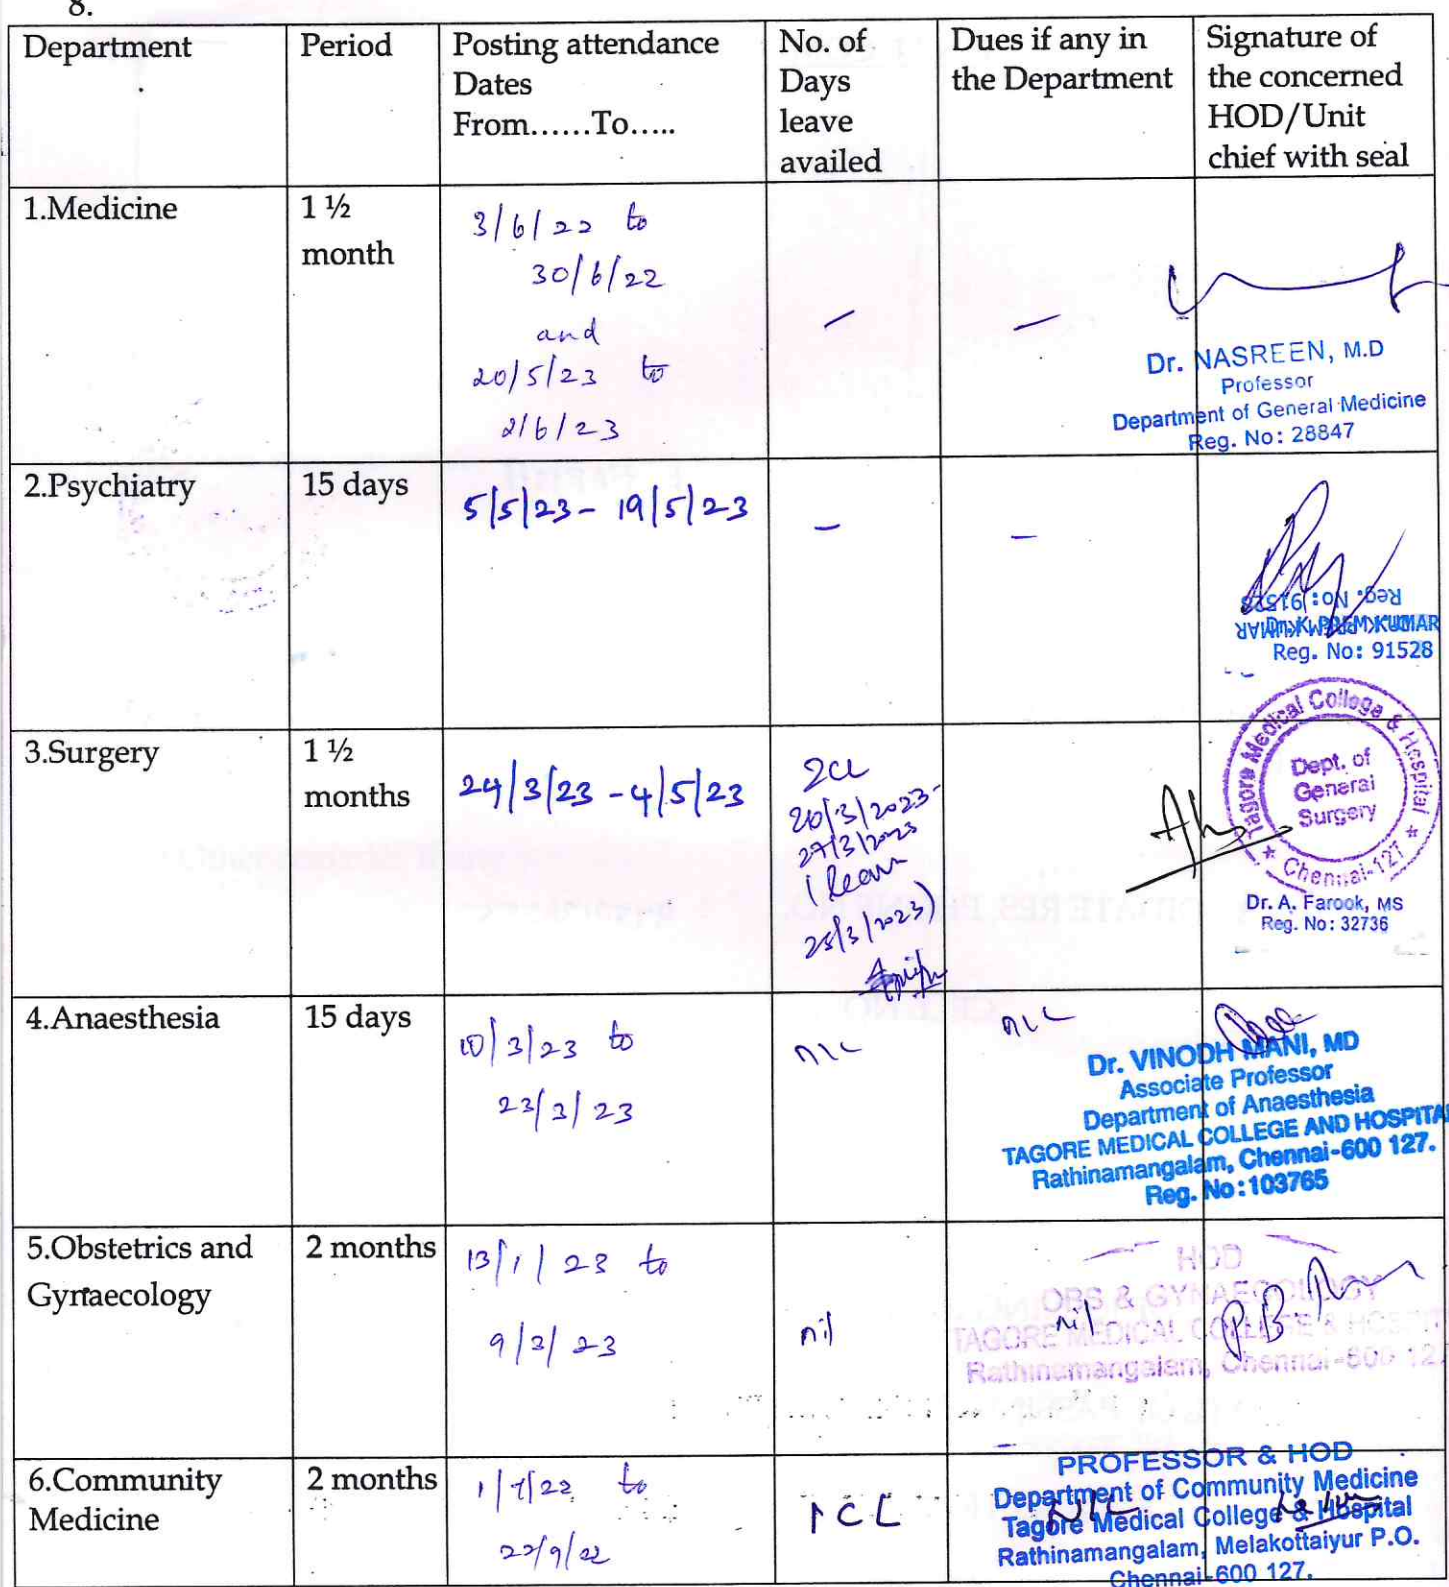 8.
Department
Period
Posting attendance
Dates
From......To.....
No. of
Days
leave
availed
Dues if any in
the Department
Signature of
the concerned
HOD/Unit
chief with seal
1.Medicine
1 ½
month
3/6/22 to
30/6/22
and
20/5/23 to
2/6/23
–
–
Dr. NASREEN, M.D
Professor
Department of General Medicine
Reg. No: 28847
2.Psychiatry
15 days
5/5/23 - 19/5/23
–
–
Reg. No: 91528
Dr. K. PREM KUMAR
Reg. No: 91528
3.Surgery
1 ½
months
24/3/23 - 4/5/23
2CL
27/3/2023
Tagore Medical College & Hospital
* Chennai-127 *
Dept. of
General
Surgery
Dr. A. Farook, MS
Reg. No: 32736
4.Anaesthesia
15 days
10/3/23 to
23/3/23
NIL
NIL
Dr. VINODH MANI, MD
Associate Professor
Department of Anaesthesia
TAGORE MEDICAL COLLEGE AND HOSPITAL
Rathinamangalam, Chennai-600 127.
Reg. No:103765
5.Obstetrics and
Gynaecology
2 months
13/1/23 to
9/3/23
nil
nil
HOD
OBS & GYNAECOLOGY
TAGORE MEDICAL COLLEGE & HOSPIT
Rathinamangalam, Chennai-600 127
P.B.
6.Community
Medicine
2 months
1/7/22 to
22/9/22
1 CL
NIL
PROFESSOR & HOD
Department of Community Medicine
Tagore Medical College & Hospital
Rathinamangalam, Melakottaiyur P.O.
Chennai-600 127.